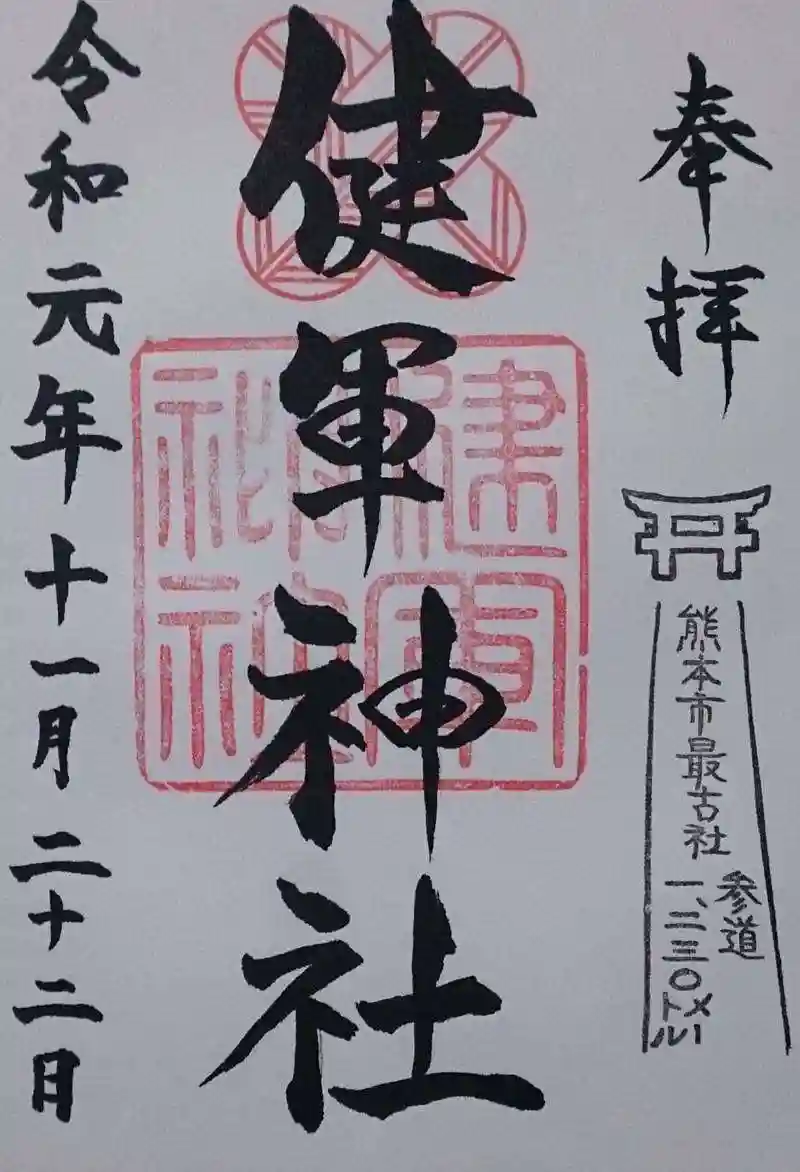 奉拝
熊本市最古社
参道
一、二三〇メートル
健軍神社
健軍神社
令和元年十一月二十二日